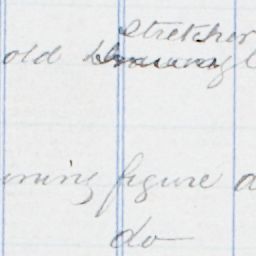 stretcher
old
ining figure a
do